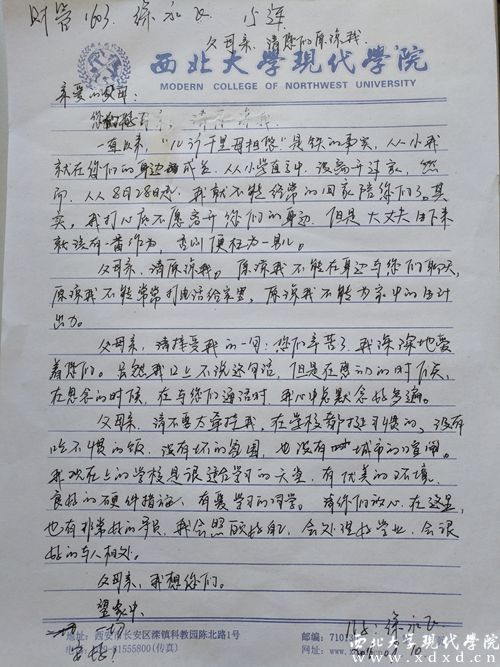 财管1603 徐永飞 15年
父母亲,请你们原谅我。
西北大学现代学院
MODERN COLLEGE OF NORTHWEST UNIVERSITY
亲爱的父母:
一直以来,“儿行千里母担忧”是铁的事实,从小我
就在你们的身边成长。从小学直高中,没离开过家,然
而,从8月28日起,我就不能经常的回家陪你们了。其
实,我打心底不愿离开你们的身边,但是大丈夫生下来
就该有一番作为,否则便枉为一男儿。
父母亲,请原谅我。原谅我不能在身边与你们聊天,
原谅我不能常常打电话给家里,原谅我不能为家中的生计
出力。
父母亲,请接受我的一句:您们辛苦了,我深深地爱
着你们。虽然我口上不说这句话,但是在感动的时候,
在思念的时候,在与你们通话时,我心中总默念好多遍。
父母亲,请不要太牵挂我,在学校都挺习惯的。没有
吃不惯的饭,没有坏的氛围,也没有城市的喧闹。
我现在上的学校是很适合学习的天堂,有优美的环境,
良好的硬件措施,有爱学习的同学。请你们放心,在这里,
也有非常好的老师,我会照顾好自己,会处理好学业,会很
好的与人相处。
父母亲,我想你们。
望家中
一切
安好!
儿子:徐永飞
地址:西安市长安区滦镇科教园陈北路1号
邮编:7101
电话: 81555800(传真)
网址:
西北大学现代学院
www.xdxd.cn